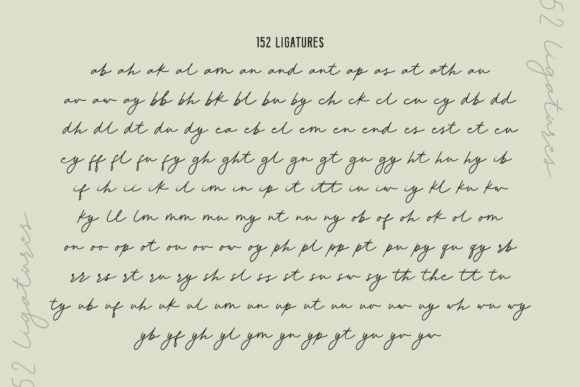 152 LIGATURES
ab ah ak al am an and ant ap as at ath au
av aw ay bb bh bk bl bu by ch ck cl cu cy db dd
dh dl dt du dy ea eb el em en end es est et eu
ey ff fl fu fy gh ght gl gn gt gu gy ht hu hy ib
if ih ii ik il im in ip it itt iu iw iy kl ku kw
ky ll lm mm mu my nt nu ny ob of oh ok ol om
on oo op ot ou ov ow oy ph pl pp pt pu py qu qy rb
rr rs rt ru ry sh sl ss st su sw sy th the tt tu
ty ub uf uh uk ul um un up ut uu uv uw uy wh wu wy
yb yf yh yl ym yn yp yt yu yv yw
52 ligatures
52 ligatures